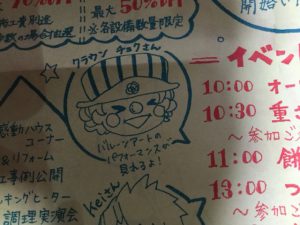 最大50%
※各設備数量限定
の場合
開始
クラウン チョクさん
イベン
10:00 オー
10:30 重さ
～参加ご
11:00 餅
～参加
13:00 つ
感動ハウス
コーナー
&リフォーム
工事例公開
ッキングヒーター
調理実演会
バルーンアートの
パフォーマンスが
見れるよ!
Keiさん